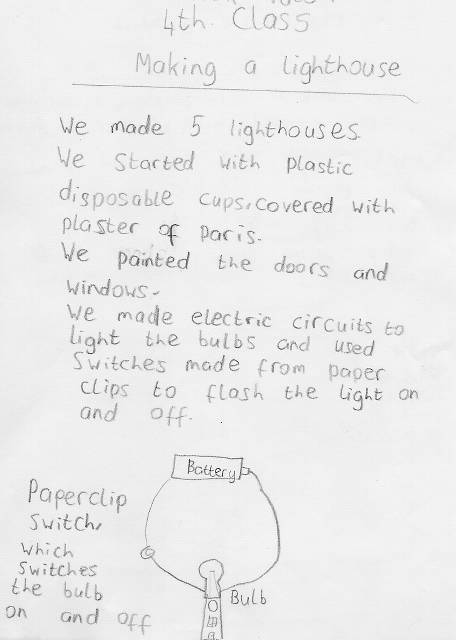 4th. Class
Making a lighthouse
We made 5 lighthouses
We started with plastic
disposable cups, covered with
plaster of paris.
We painted the doors and
windows.
We made electric circuits to
light the bulbs and used
switches made from paper
clips to flash the light on
and off.
Battery
Paperclip
switch,
which
switches
the bulb
on and off
Bulb